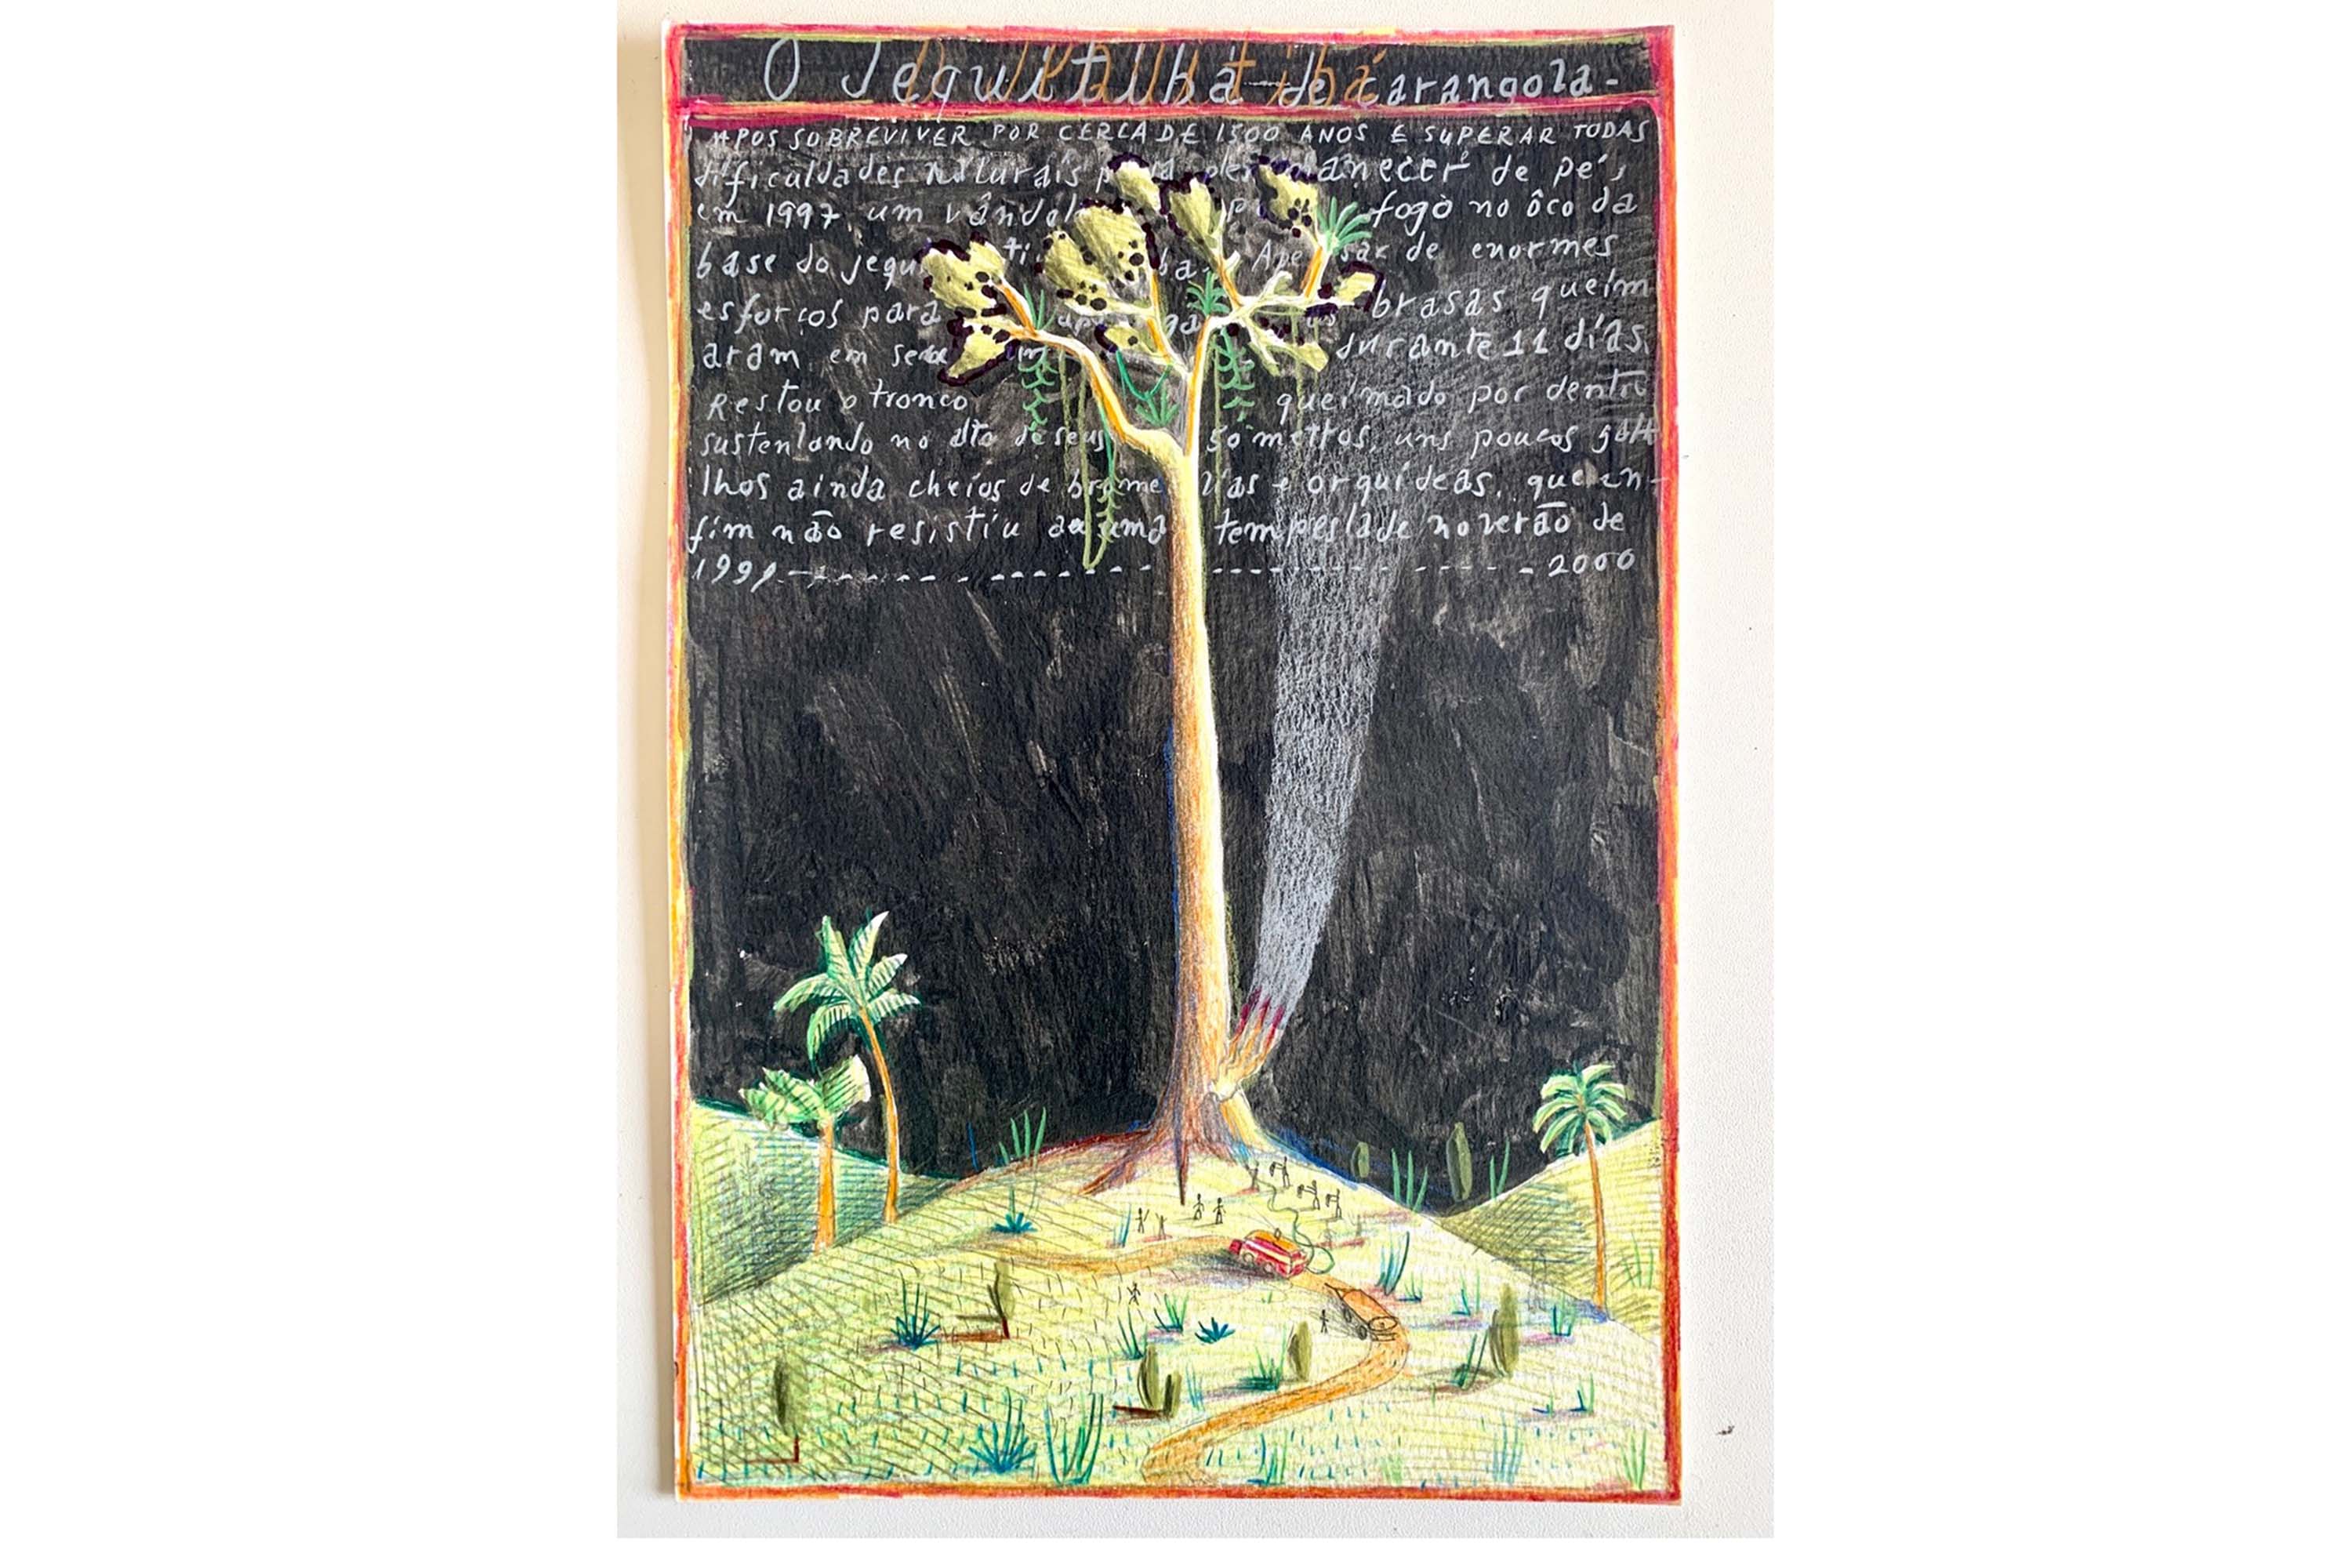 O Jequitibá de carangola-
APOS SOBREVIVER POR CERCA DE 1500 ANOS E SUPERAR TODAS
dificuldades Naturais para permanecer de pé,
em 1997, um vândalo fogo no ôco da
base do jequitiba. Apesar de enormes
esforços para apagar brasas queim
aram em seu durante 11 dias
Restou o tronco queimado por dentro
sustentando no alto de seus 50 metros, uns poucos ga
lhos ainda cheios de bromelias e orquídeas, que en-
fim não resistiu a uma tempestade no verão de
1999 - - - - - - - - - - - - - - - - - - - - 2000